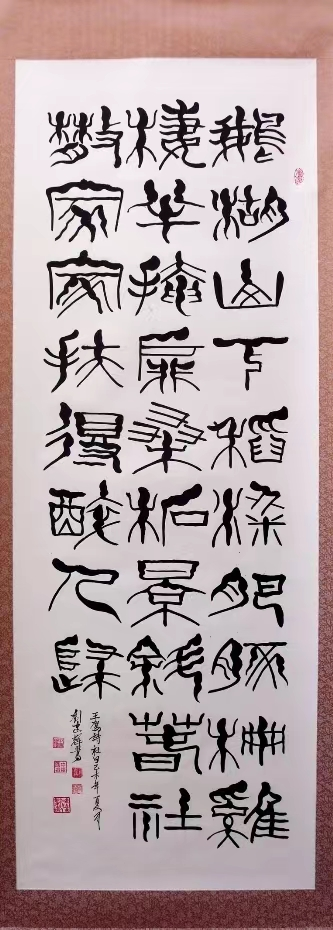 鵝湖山下稻粱肥豚柵雞
棲半掩扉桑柘景斜萅社
散家家扶得醉人歸
王駕詩社日年夏月